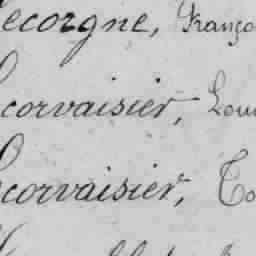 Lecorgne, Franço
Lcorvaisier, Lou
Lcorvaisier, To